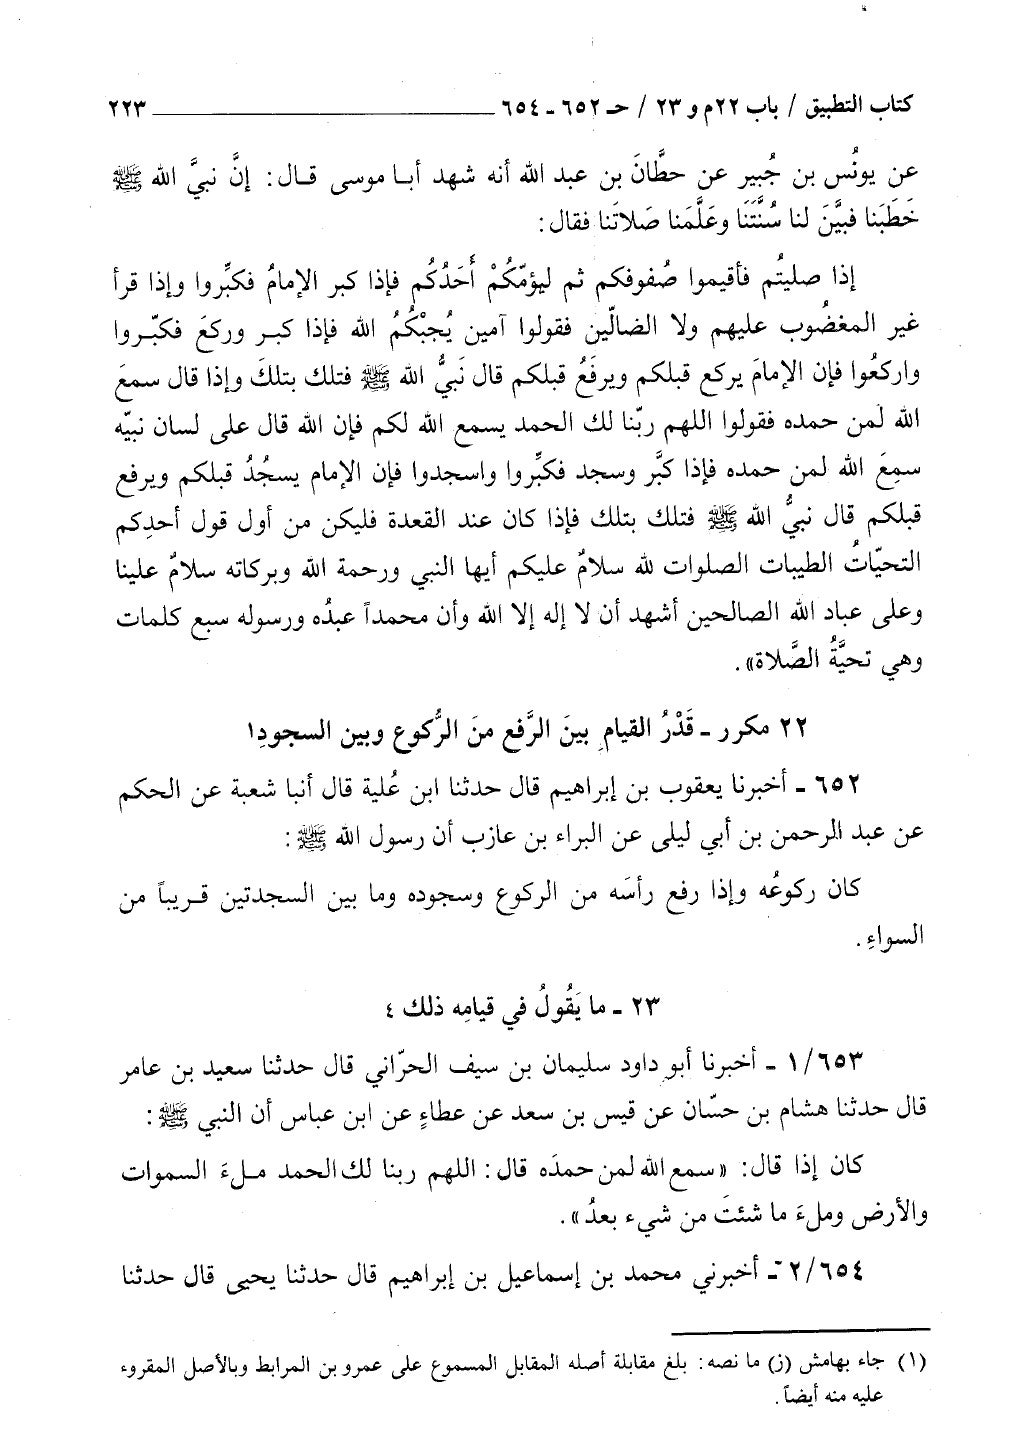 كتاب التطبيق / باب ٢٢م و ٢٣ / حـ ٦٥٢ ـ ٦٥٤ ٢٢٣
عن يونُس بن جُبير عن حطَّانَ بن عبد الله أنه شهد أبا موسى قال: إنَّ نبيَّ الله ﷺ
خَطَبَنا فبيَّنَ لنا سُنَّتَنَا وعَلَّمَنا صَلاتَنا فقال:
إذا صليتُم فأقيموا صُفوفكم ثم ليؤمّكُمْ أَحَدُكُم فإذا كبر الإمامُ فكبِّروا وإذا قرأ
غير المغضُوب عليهم ولا الضالّين فقولوا آمين يُجبْكُمُ الله فإذا كبر وركعَ فكبّروا
واركعُوا فإن الإمامَ يركع قبلكم ويرفَعُ قبلكم قال نَبيُّ الله ﷺ فتلك بتلكَ وإذا قال سمعَ
الله لمن حمده فقولوا اللهم ربّنا لك الحمد يسمع الله لكم فإن الله قال على لسان نبيّه
سمِعَ الله لمن حمده فإذا كبَّر وسجد فكبِّروا واسجدوا فإن الإمام يسجُدُ قبلكم ويرفع
قبلكم قال نبيُّ الله ﷺ فتلك بتلك فإذا كان عند القعدة فليكن من أول قول أحدِكم
التحيّاتُ الطيبات الصلوات لله سلامٌ عليكم أيها النبي ورحمة الله وبركاته سلامٌ علينا
وعلى عباد الله الصالحين أشهد أن لا إله إلا الله وأن محمداً عبدُه ورسوله سبع كلمات
وهي تحيَّةُ الصَّلاة».
٢٢ مكرر ـ قَدْرُ القيامِ بينَ الرَّفع منَ الرُّكوع وبين السجودِ١
٦٥٢ ـ أخبرنا يعقوب بن إبراهيم قال حدثنا ابن عُلية قال أنبا شعبة عن الحكم
عن عبد الرحمن بن أبي ليلى عن البراء بن عازب أن رسول الله ﷺ:
كان ركوعُه وإذا رفع رأسَه من الركوع وسجوده وما بين السجدتين قريباً من
السواءِ.
٢٣ ـ ما يَقُولُ في قيامِه ذلك ٤
١/٦٥٣ ـ أخبرنا أبو داود سليمان بن سيف الحرّاني قال حدثنا سعيد بن عامر
قال حدثنا هشام بن حسّان عن قيس بن سعد عن عطاءٍ عن ابن عباس أن النبي ﷺ:
كان إذا قال: «سمع الله لمن حمدَه قال: اللهم ربنا لك الحمد ملءَ السموات
والأرض وملءَ ما شئتَ من شيء بعدُ».
٢/٦٥٤ ـ أخبرني محمد بن إسماعيل بن إبراهيم قال حدثنا يحيى قال حدثنا
(١) جاء بهامش (ز) ما نصه: بلغ مقابلة أصله المقابل المسموع على عمرو بن المرابط وبالأصل المقروء
عليه منه أيضاً.